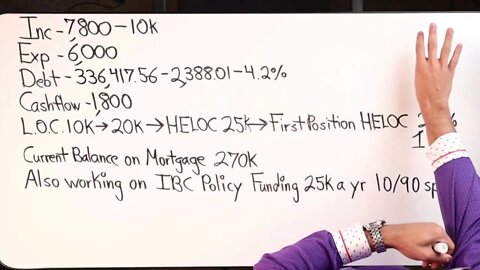 Inc - 7,800 - 10k
Exp - 6,000
Debt - 336,417.56 - 2,388.01 - 4.2%
Cashflow - 1,800
L.O.C. 10k → 20k → HELOC 25k → First Position HELOC
Current Balance on Mortgage 270k
Also working on IBC Policy Funding 25k a yr 10/90